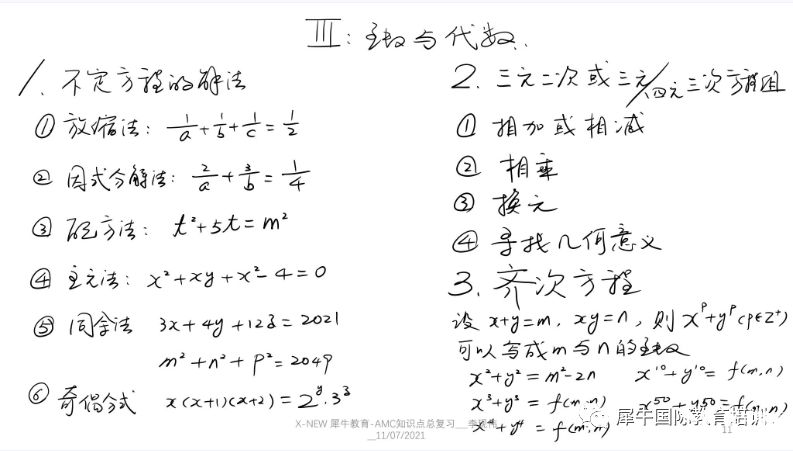 III: 函数与代数.
1. 不定方程的解法
① 放缩法: 1/a + 1/b + 1/c = 1/2
② 因式分解法: 2/a + 3/b = 1/4
③ 配方法: t²+5t=m²
④ 主元法: x²+xy+x²-4=0
⑤ 同余法 3x+4y+12z=2021
m²+n²+p²=2049
⑥ 奇偶分式 x(x+1)(x+2)=2^y·3^z
2. 三元二次或三元/四元三次方程组
① 相加或相减
② 相乘
③ 换元
④ 寻找几何意义
3. 齐次方程
设 x+y=m, xy=n, 则 x^p+y^p (p∈Z⁺)
可以写成m与n的函数
x²+y²=m²-2n x¹⁰+y¹⁰=f(m,n)
x³+y³=f(m,n) x⁵⁰+y⁵⁰=f(m,n)
x⁴+y⁴=f(m,n)
犀牛国际教育
X-NEW 犀牛教育-AMC知识点总复习__李
__11/07/2021
11